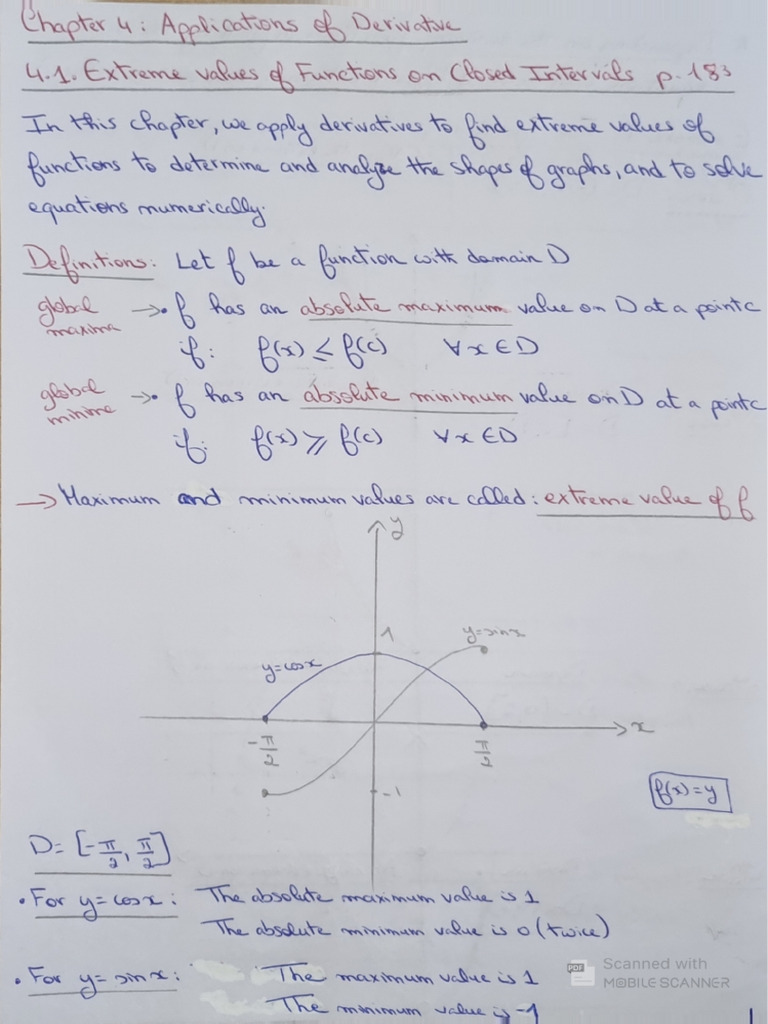 Chapter 4: Applications of Derivative
4.1. Extreme values of Functions on Closed Intervals p. 183
In this chapter, we apply derivatives to find extreme values of
functions to determine and analyze the shapes of graphs, and to solve
equations numerically.
Definitions: Let f be a function with domain D
global maxima → • f has an absolute maximum value on D at a point c
if: f(x) ≤ f(c) ∀x ∈ D
global minima → • f has an absolute minimum value on D at a point c
if: f(x) ≥ f(c) ∀x ∈ D
→ Maximum and minimum values are called: extreme value of f
y
1
y=sinx
y=cosx
x
-π/2
π/2
-1
f(x)=y
D= [-π/2, π/2]
• For y=cosx: The absolute maximum value is 1
The absolute minimum value is 0 (twice)
• For y=sinx: The maximum value is 1
The minimum value is -1
PDF
Scanned with
MOBILE SCANNER